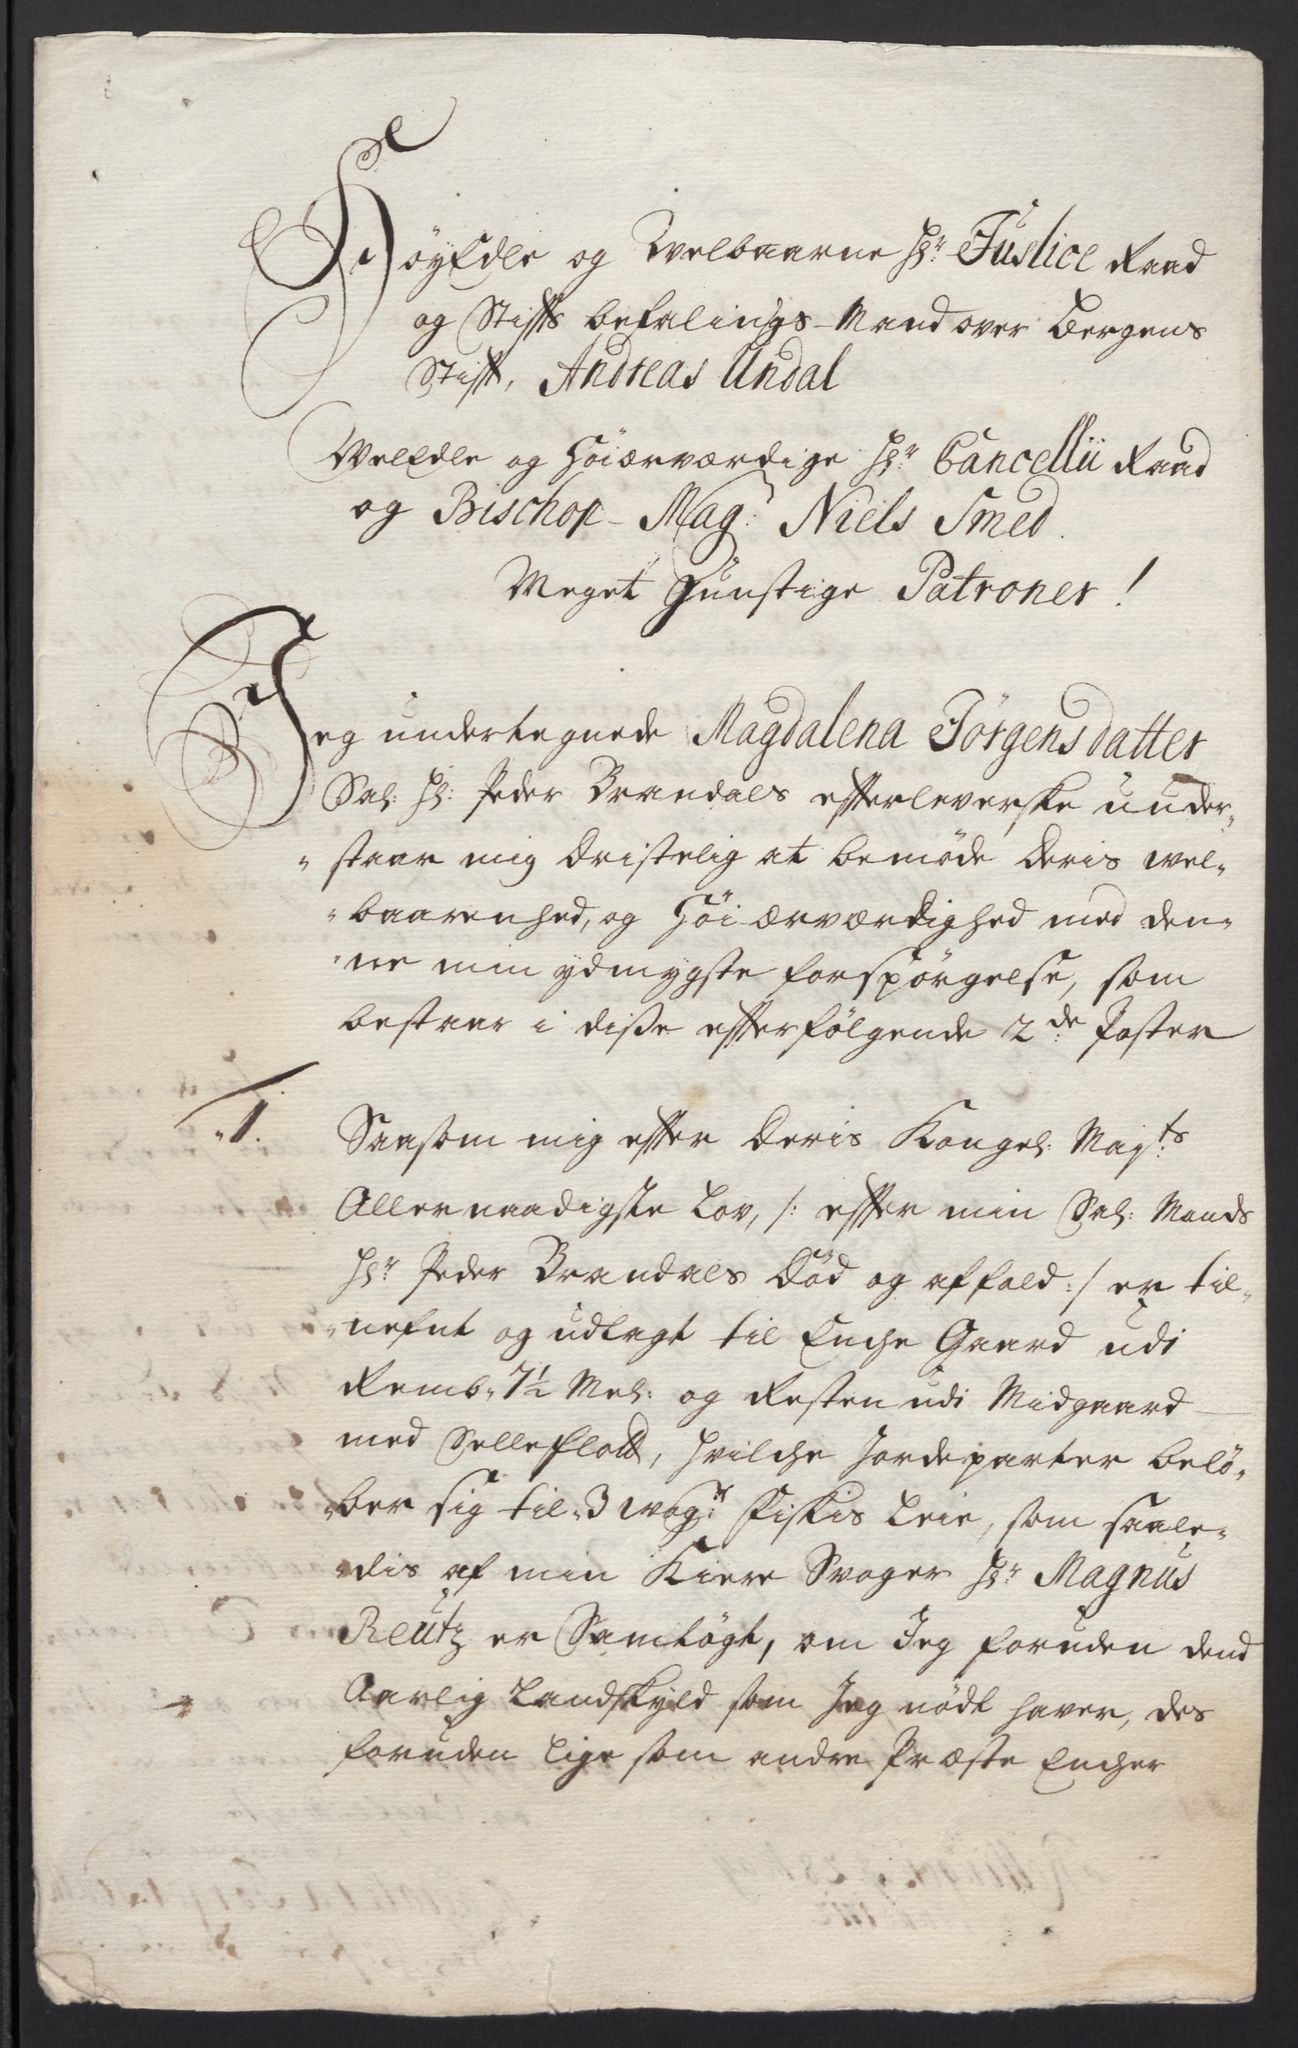 HöyEdle og Welbaarne Hr: Justice Raad
og Stiffts befalings-Mand over Bergens
Stifft, Andreas Undal
WelEdle og Höiærværdige Hr: Cancellii Raad
og Bischop- Mag:r Niels Smed.
Meget Gunstige Patroner!
Jeg undertegnede Magdalena Jörgensdatter
Sal: Hr: Peder Brandals effterleverske under-
staar mig dristelig at bemöde deris wel-
baarenhed, og Höi ærværdighed med den-
ne min ydmygste forspörgelse, som
bestaar i disse effterfölgende 2de: Poster
1.
Saasom mig effter deris Kongel: Mays:ts
Allernaadigste Lov, /: effter min Sal: Mands
Hr: Peder Brandals Död og affald :/ er til-
nefnt og udlagt til Enche Gaard udi
Remb- 7½ Mel: og Resten udi Midgaard
med Selleflott, hvilche Jordeparter belö-
ber sig til 3 wog:r Fiskis Leie, som saale-
dis af min Kiere Svoger Hr: Magnus
Reutz er Samtögt, om Jeg foruden dend
Aarlig Landskyld som Jeg nödt haver, des
foruden lige som andre Præste Encher